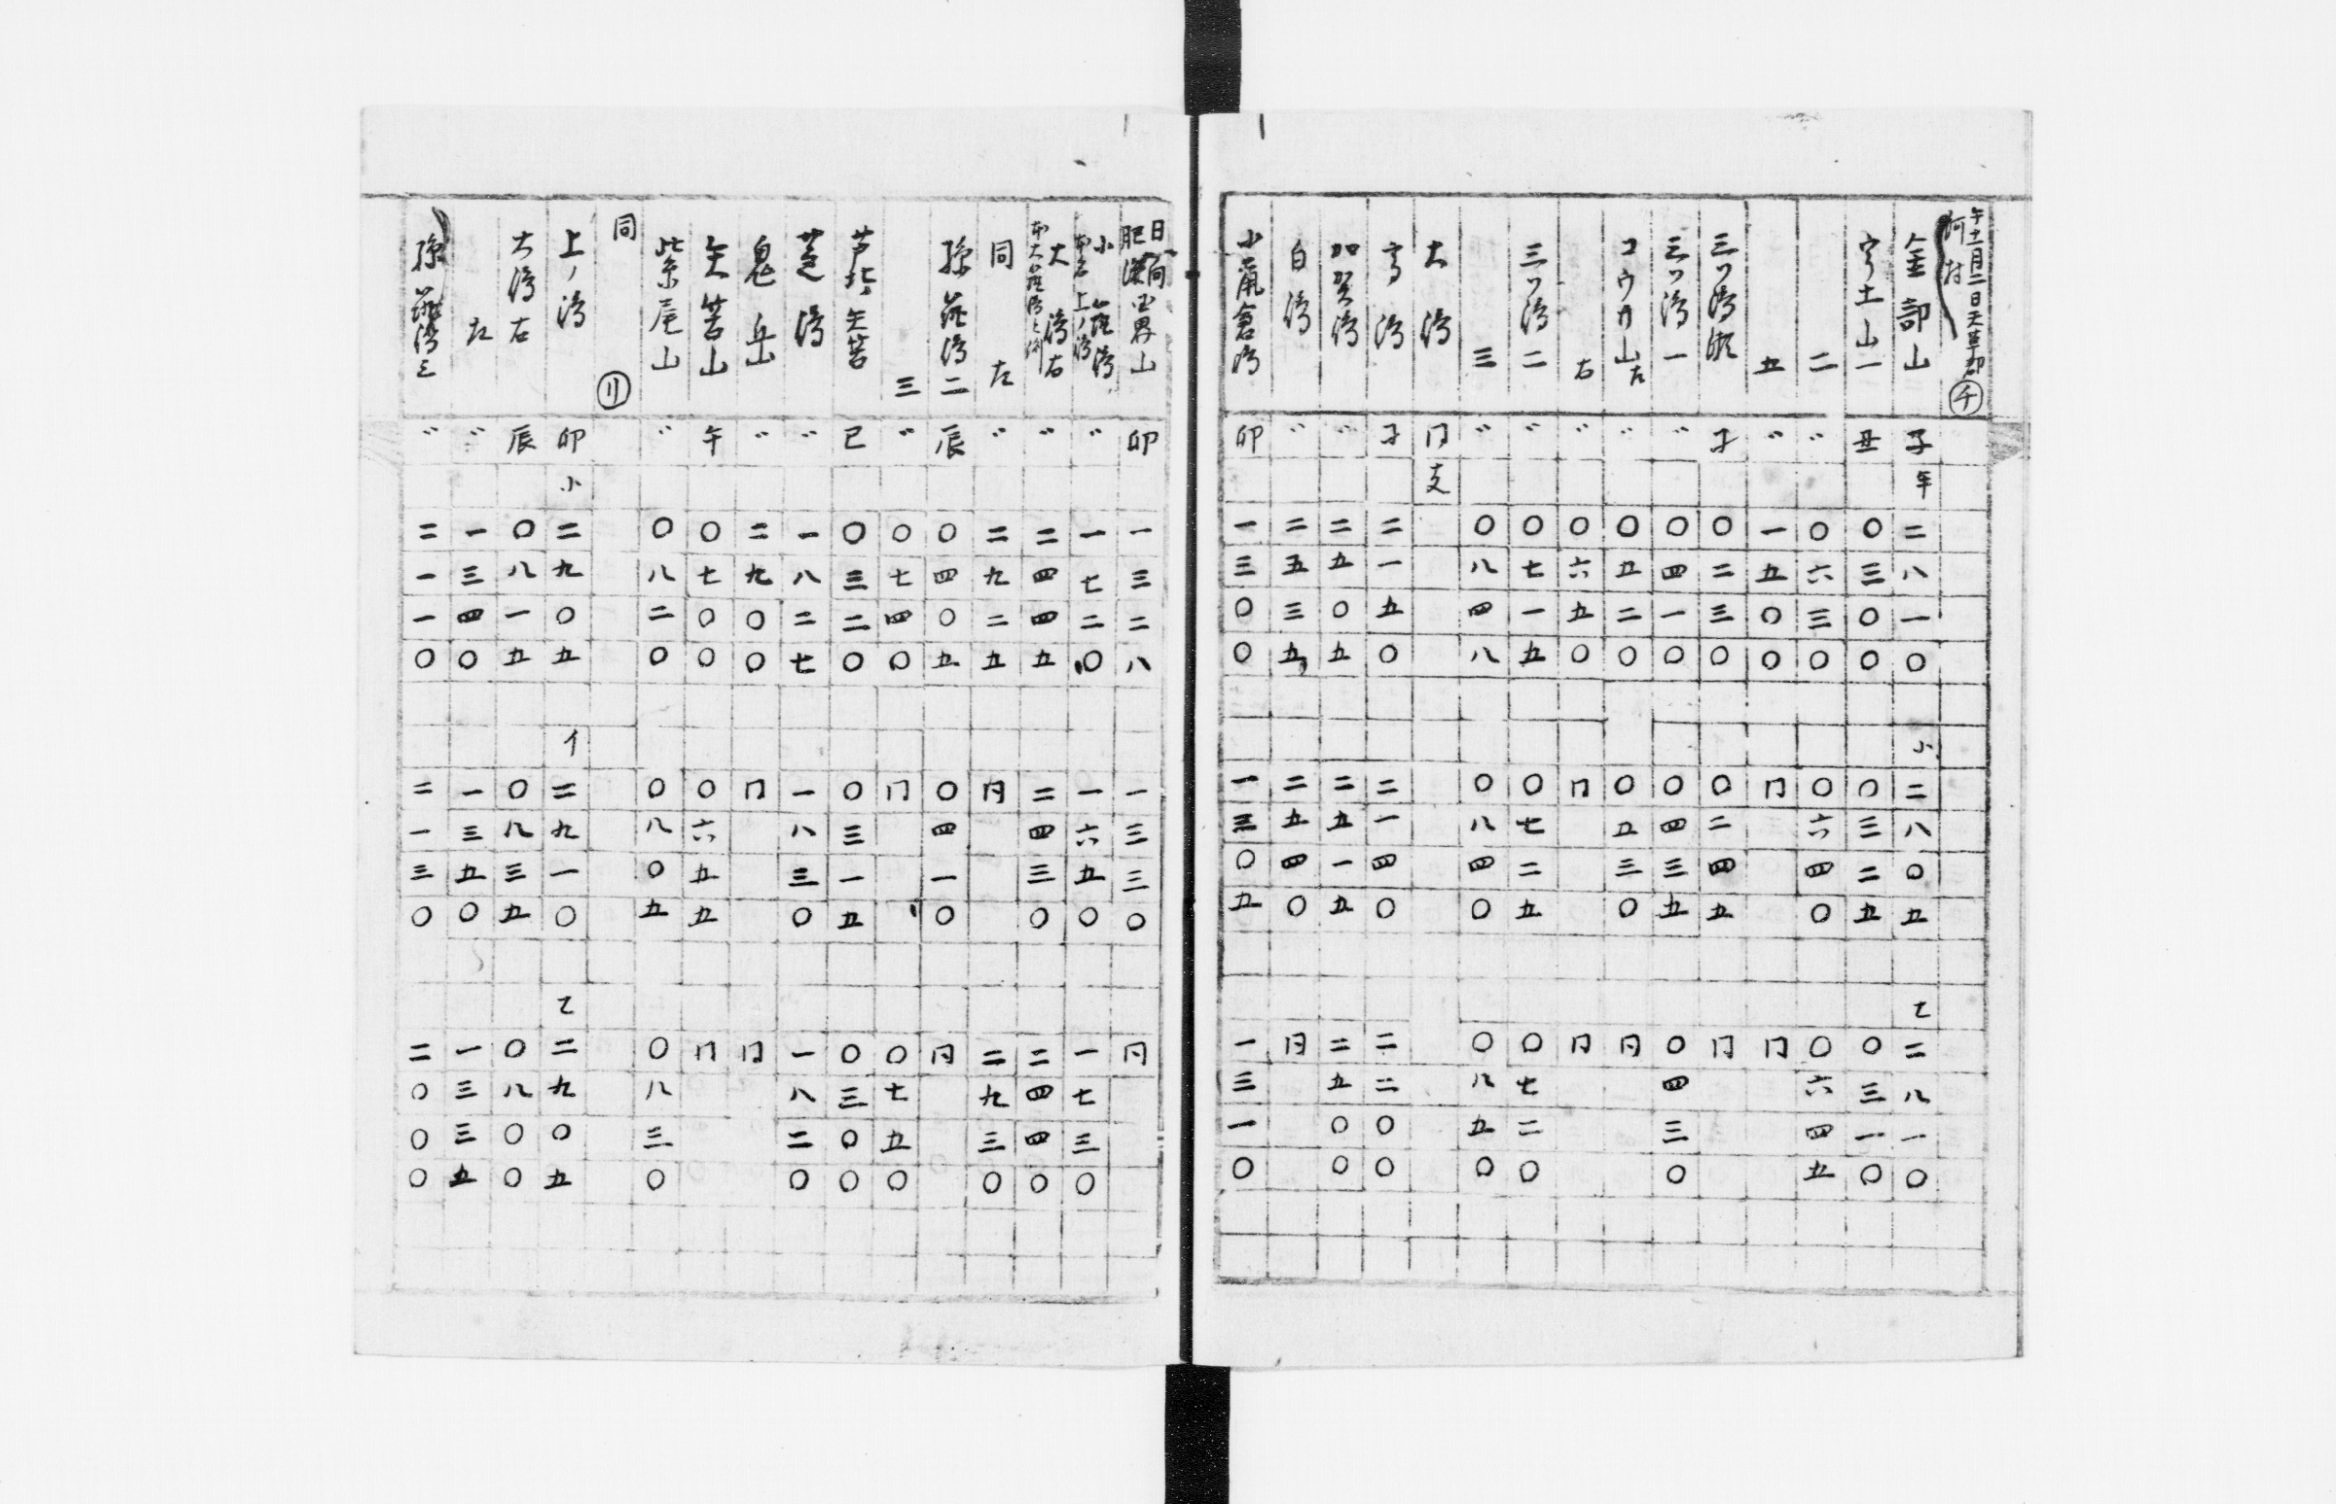 午十一月二日天草郡
河村 チ
金部山 子年 二八一〇 小 二八〇五 乙 二八一〇
宇土山一 丑 〇三〇〇 〇三二五 〇三一〇
二 〃 〇六三〇 〇六四〇 〇六四五
五 〃 一五〇〇 冂 冂
三ツ嶋 子 〇二三〇 〇二四五 冂
三ツ嶋一 〃 〇四一〇 〇四三五 〇四三〇
コウカ山左 〃 〇五二〇 〇五三〇 冂
右 〃 〇六五〇 冂 冂
三ツ嶋二 〃 〇七一五 〇七二五 〇七二〇
三 〃 〇八四八 〇八四〇 〇八五〇
大嶋 冂支
高嶋 子 二一五〇 二一四〇 二二〇〇
加賀嶋 〃 二五〇五 二五一五 二五〇〇
白嶋 〃 二五三五 二五四〇 冂
小 倉嶋 卯 一三〇〇 一三〇五 一三一〇
日向
肥後 界山 卯 一三二八 一三三〇 冂
小 嶋 上ノ嶋 〃 一七二〇 一六五〇 一七三〇
大 嶋右 〃 二四四五 二四三〇 二四四〇
同 左 〃 二九二五 冂 二九三〇
嶋二 辰 〇四〇五 〇四一〇 冂
三 〃 〇七四〇 冂 〇七五〇
芦北矢筈 巳 〇三二〇 〇三一五 〇三〇〇
芝嶋 〃 一八二七 一八三〇 一八二〇
鬼岳 〃 二九〇〇 冂 冂
矢筈山 午 〇七〇〇 〇六五五 冂
紫尾山 〃 〇八二〇 〇八〇五 〇八三〇
同 リ
上ノ嶋 卯 小 二九〇五 イ 二九一〇 乙 二九〇五
大嶋右 辰 〇八一五 〇八三五 〇八〇〇
左 〃 一三四〇 一三五〇 一三三五
嶋三 〃 二一一〇 二一三〇 二〇〇〇